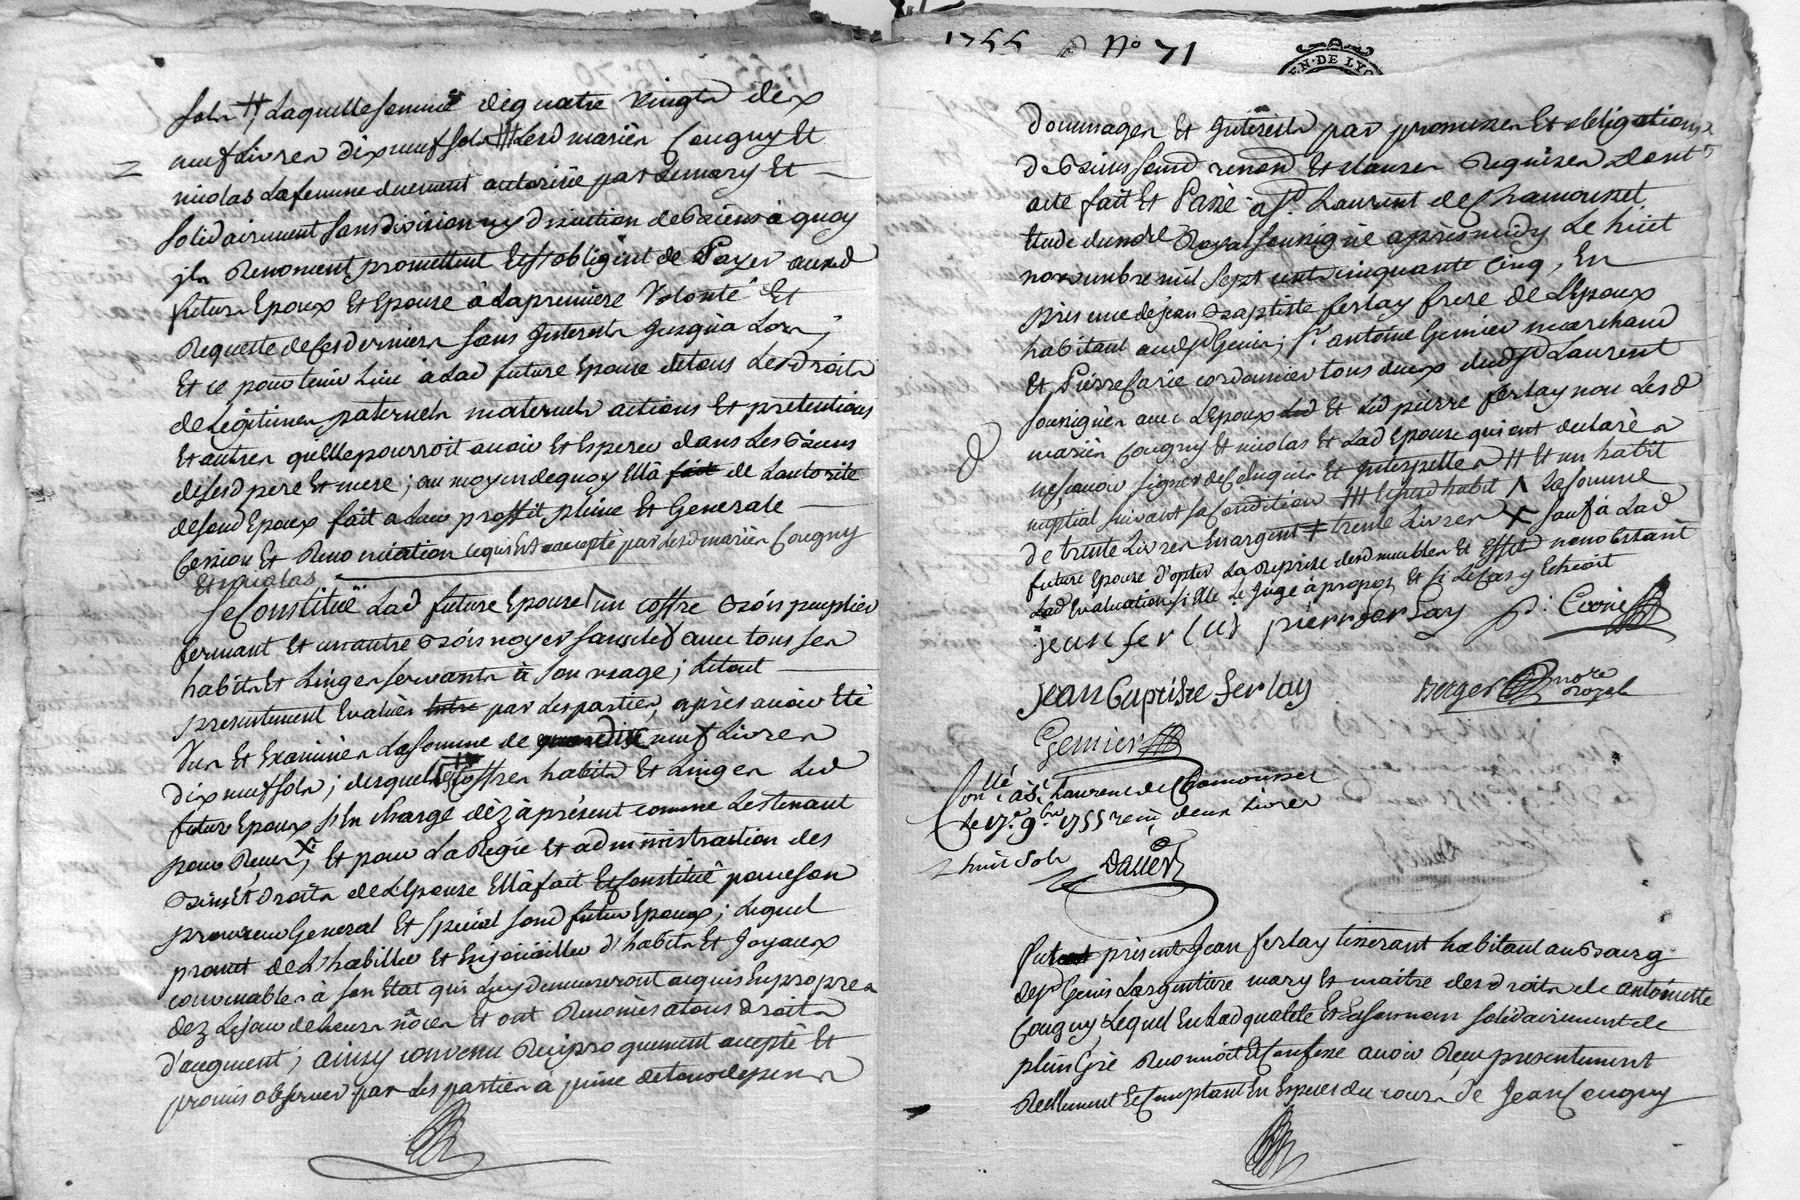 sols # Laquelle somme de quatre vingts dix
neuf Livres dix neuf sols ### Lesd mariés Cougny Et
nicolas La femme duement autorisée par Le mary Et
solidairement sans division ny discution de biens à quoy
ils Renoncent promettent Et s'obligent de Payer auxd
futurs Epoux Et Epouse à La premiere Volonté Et
Requette de ces derniers sans Interests Jusqu'a Lors ;
Et ce pour tenir Lieu à Lad future Epouse de tous Les droits
de Legitimes paternels maternels actions Et pretentions
Et autres qu'elle pourroit avoir Et Esperer dans Les biens
de sesd pere Et mere ; au moyen de quoy Ell'a fait de L'autorité
de sond Epoux fait a Leur proffit pleine Et Generale
Cession Et Renonciation ce qui Est accepté par Lesd mariés Cougny
Et nicolas
Se Constitue Lad future Epouse un coffre bois peuplier
fermant Et un autre bois noyer sans clef avec tous ses
habits Et Linges servants à son usage ; Le tout
presentement Evalués par Les parties, après avoir Eté
Vus Et Examinés La somme de dix neuf Livres
dix neuf sols ; desquels coffres habits Et Linges Led
futur Epoux s'En charge dèz à présent comme Les tenant
pour Reçus X ; Et pour La Régie Et administration des
biens Et droits de L'Epouse Ell'a fait Et Constitué pour son
procureur General Et special sond futur Epoux ; Lequel
promet de L'habiller Et Enjoüailler d'habits Et Joyaux
convenables à son Etat qui Luy demeureront acquis En propres
dez Le jour de Leurs nôces Et ont Renoncés a tous droits
d'augment ; ainsy convenu Reciproquement accepté Et
promis observer par Les parties à peine de tous depens
1755 No 71
EN. DE LYO
dommages Et Interests par promesses Et obligations
de biens soumd renond Et clauses Requises dont
acte fait Et Passé a St. Laurent de Chamousset
Etude du notre Royal soussigné après midy Le huit
novembre mil sept cents cinquante Cinq, En
présence de jean Baptiste ferlay frere de L'Epoux
habitant aud St Genis ; Sr. antoine Gemier marchand
Et Pierre Carie cordonnier tous deux dud St Laurent
soussignés avec L'Epoux Led Et Led pierre ferlay non Lesd
mariés Cougny Et nicolas Et Lad Epouse qui ont declarés
ne sçavoir signer de ce Enquis Et Interpellés # Et un habit
nuptial suivant sa condition ### Lesusd habit Λ La somme
de trente Livres En argent ≠ trente Livres X sauf à Lad
future Epouse d'opter La Reprise desd meubles Et Effets nonobstant
Lad Evaluation si Elle Le Juge à propos Et si Le Cas y Echeoit
jean fer laij pierr fer Lay p: Corie
jean Baptiste ferlay Berger notre Royal
Gemier
Con llé à St Laurent de Chamousset
Le 17e 9bre 1755 reçu deux Livres
huit sols Daver
Fut présent Jean ferlay tisserant habitant au Bourg
de St Genis Largentiere mary Et maitre des droits de antoinette
Cougny, Lequel En Lad qualité Et En son nom solidairement de
plein Gré Reconnoit Et Confesse avoir Reçu presentement
Reellement Et Comptant En Especes du cours de Jean Cougny